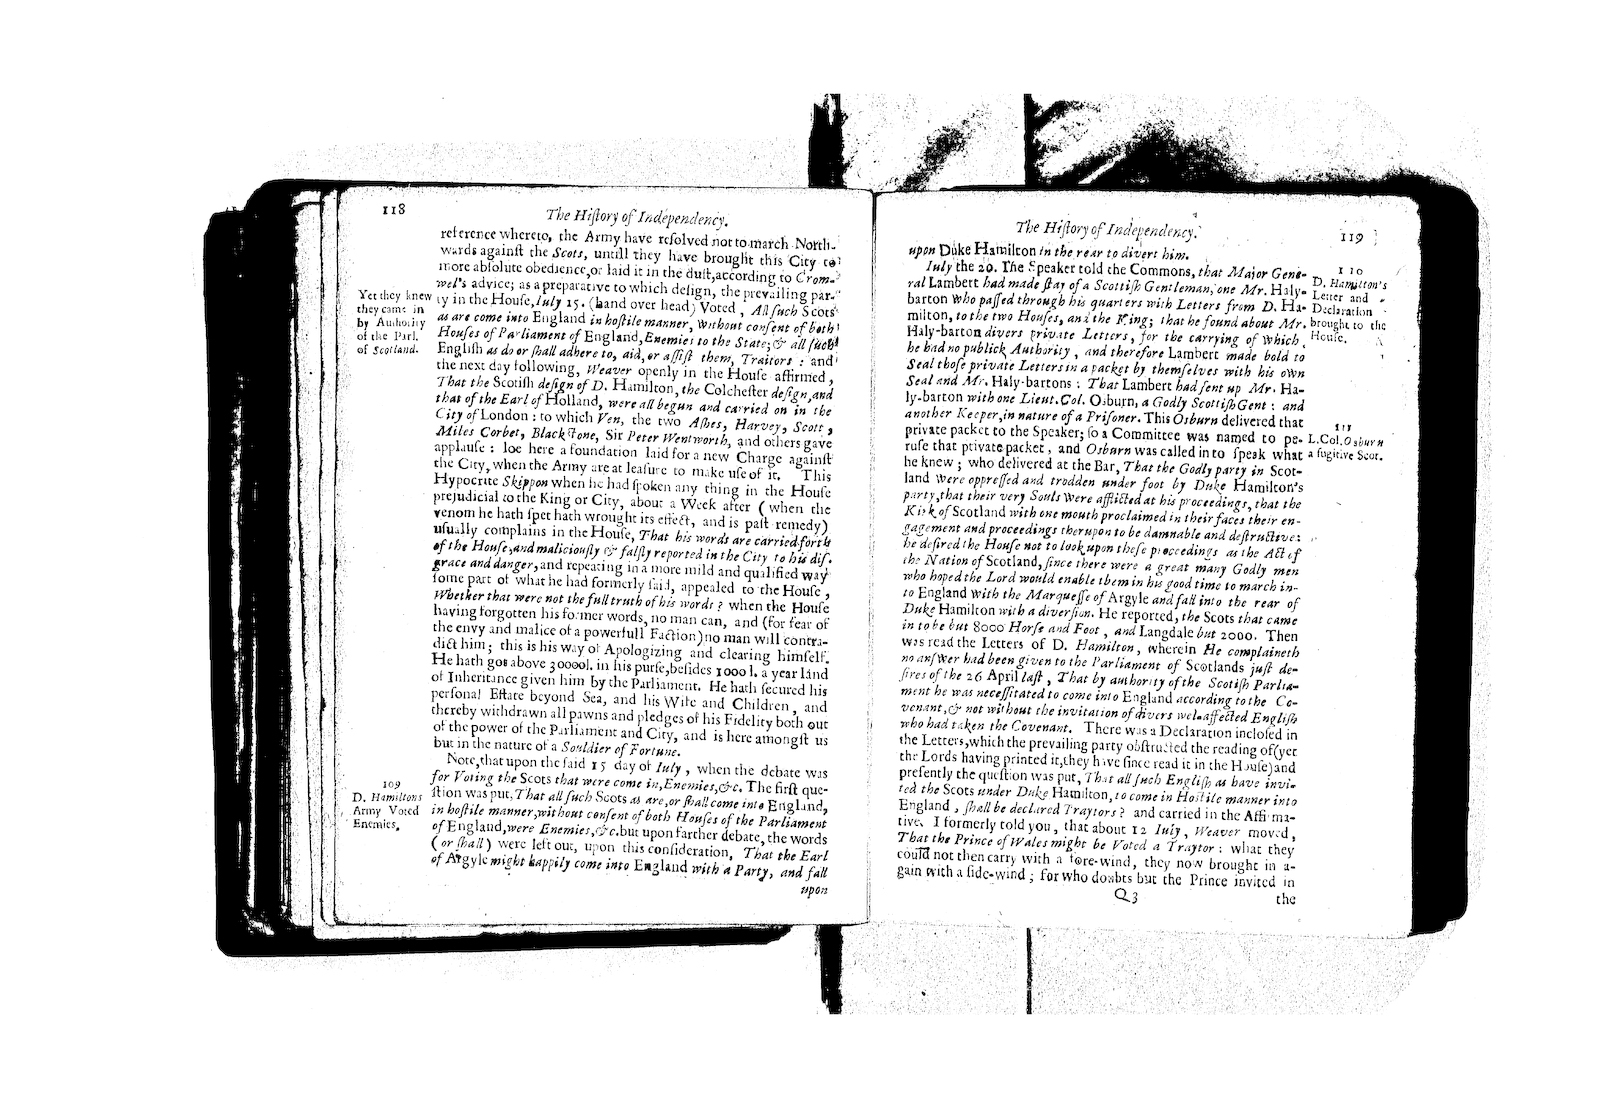 118
The Hiſtory of Independency.
reference whereto, the Army have reſolved not to march North-
wards againſt the Scots, untill they have brought this City to
more abſolute obedience, or laid it in the duſt, according to Crom-
wel's advice; as a preparative to which deſign, the prevailing par-
ty in the Houſe, Iuly 15. (hand over head) Voted, All ſuch Scots
as are come into England in hoſtile manner, without conſent of both
Houſes of Parliament of England, Enemies to the State; & all ſuch
Engliſh as do or ſhall adhere to, aid, or aſſiſt them, Traitors: and
the next day following, Weaver openly in the Houſe affirmed,
That the Scotiſh deſign of D. Hamilton, the Colcheſter deſign, and
that of the Earl of Holland, were all begun and carried on in the
City of London: to which Ven, the two Aſhes, Harvey, Scott,
Miles Corbet, Blackſtone, Sir Peter Wentworth, and others gave
applauſe: loe here a foundation laid for a new Charge againſt
the City, when the Army are at leaſure to make uſe of it. This
Hypocrite Skippon when he had ſpoken any thing in the Houſe
prejudicial to the King or City, about a Week after (when the
venom he hath ſpet hath wrought its effect, and is paſt remedy)
uſually complains in the Houſe, That his words are carried forth
of the Houſe, and maliciouſly & falſly reported in the City to his diſ-
grace and danger, and repeating in a more mild and qualified way
ſome part of what he had formerly ſaid, appealed to the Houſe,
Whether that were not the full truth of his words? when the Houſe
having forgotten his former words, no man can, and (for fear of
the envy and malice of a powerfull Faction) no man will contra-
dict him; this is his way of Apologizing and clearing himſelf.
He hath got above 30000l. in his purſe, beſides 1000 l. a year land
of Inheritance given him by the Parliament. He hath ſecured his
perſonal Eſtate beyond Sea, and his Wife and Children, and
thereby withdrawn all pawns and pledges of his Fidelity both out
of the power of the Parliament and City, and is here amongſt us
but in the nature of a Souldier of Fortune.
Note, that upon the ſaid 15 day of Iuly, when the debate was
for Voting the Scots that were come in, Enemies, &c. The firſt que-
ſtion was put, That all ſuch Scots as are, or ſhall come into England,
in hoſtile manner, without conſent of both Houſes of the Parliament
of England, were Enemies, &c. but upon farther debate, the words
(or ſhall) were left out, upon this conſideration, That the Earl
of Argyle might happily come into England with a Party, and fall
upon
Yet they knew
they came in
by Authority
of the Parl.
of Scotland.
109
D. Hamiltons
Army Voted
Enemies.
The Hiſtory of Independency.
119
upon Duke Hamilton in the rear to divert him.
July the 20. The Speaker told the Commons, that Major Gene-
ral Lambert had made ſtay of a Scottiſh Gentleman, one Mr. Haly-
barton who paſſed through his quarters with Letters from D. Ha-
milton, to the two Houſes, and the King; that he found about Mr.
Haly-barton divers private Letters, for the carrying of which
he had no publick Authority, and therefore Lambert made bold to
Seal thoſe private Letters in a packet by themſelves with his own
Seal and Mr. Haly-bartons: That Lambert had ſent up Mr. Ha-
ly-barton with one Lieut. Col. Osburn, a Godly Scottiſh Gent: and
another Keeper, in nature of a Priſoner. This Osburn delivered that
private packet to the Speaker; ſo a Committee was named to pe-
ruſe that private packet, and Osburn was called in to ſpeak what
he knew; who delivered at the Bar, That the Godly party in Scot-
land were oppreſſed and trodden under foot by Duke Hamilton's
party, that their very Souls were afflicted at his proceedings, that the
Kirk of Scotland with one mouth proclaimed in their faces their en-
gagement and proceedings therupon to be damnable and deſtructive:
he deſired the Houſe not to look upon theſe proceedings as the Act of
the Nation of Scotland, ſince there were a great many Godly men
who hoped the Lord would enable them in his good time to march in-
to England with the Marqueſſe of Argyle and fall into the rear of
Duke Hamilton with a diverſion. He reported, the Scots that came
in to be but 8000 Horſe and Foot, and Langdale but 2000. Then
was read the Letters of D. Hamilton, wherein He complaineth
no anſwer had been given to the Parliament of Scotlands juſt de-
ſires of the 26 April laſt, That by authority of the Scotiſh Parlia-
ment he was neceſſitated to come into England according to the Co-
venant, & not without the invitation of divers wel-affected Engliſh
who had taken the Covenant. There was a Declaration incloſed in
the Letters, which the prevailing party obſtructed the reading of (yet
the Lords having printed it, they have ſince read it in the Houſe) and
preſently the queſtion was put, That all ſuch Engliſh as have invi-
ted the Scots under Duke Hamilton, to come in Hoſtile manner into
England, ſhall be declared Traytors? and carried in the Affirma-
tive. I formerly told you, that about 12 Iuly, Weaver moved,
That the Prince of Wales might be Voted a Traytor: what they
could not then carry with a fore-wind, they now brought in a-
gain with a ſide-wind; for who doubts but the Prince invited in
Q3
the
110
D. Hamilton's
Letter and
Declaration
brought to the
Houſe.
111
L. Col. Osburn
a fugitive Scot.